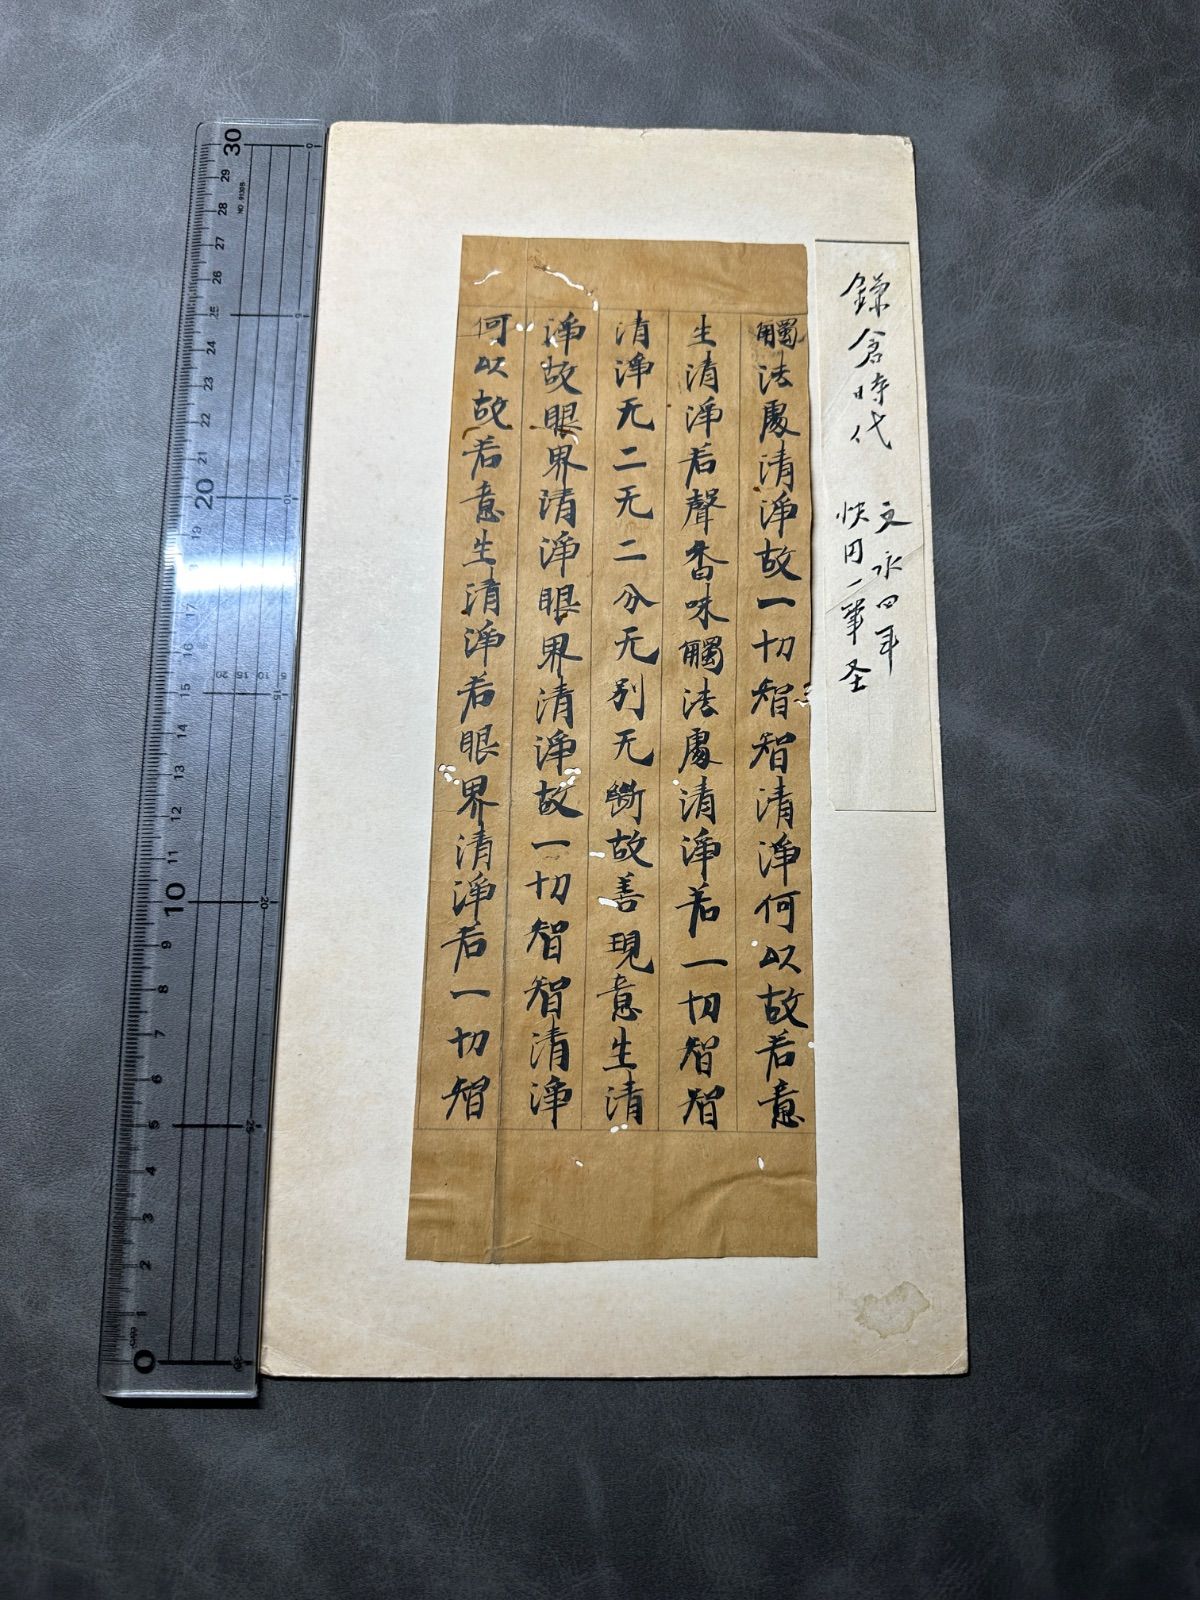 鎌倉時代
文永四年
快円一筆圣
觸法處清淨故一切智智清淨何以故若意
生清淨若聲香味觸法處清淨若一切智智
清淨无二无二分无別无斷故善現意生清
淨故眼界清淨眼界清淨故一切智智清淨
何以故若意生清淨若眼界清淨若一切智
30
29
28
27
26
25
24
23
22
21
20
19
18
17
16
15
14
13
12
11
10
9
8
7
6
5
4
3
2
1
0